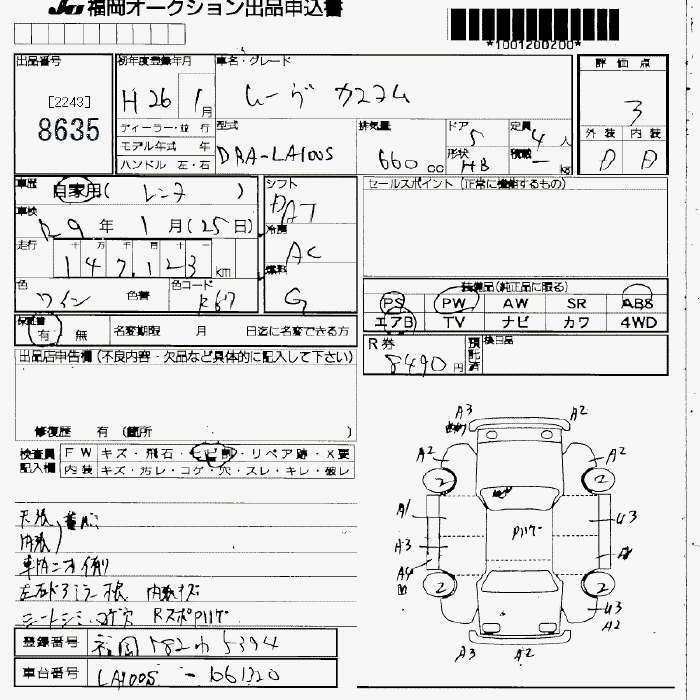 JU 福岡オークション出品申込書
*1001200200*
出品番号
[2243]
8635
初年度登録年月
H 26 1月
車名・グレード
ムーヴ カスタム
評価点
3
外装 内装
D D
ディーラー・並行
モデル年式 年
ハンドル 左・右
型式
DBA-LA100S
排気量
660 cc
ドア
5
形状
HB
定員
4人
積載
- kg
車歴
自家用( レンタ )
車検
R9年 1月(25日)
走行
十 万 千 百 十
147,123 km
色
ワイン 色番
色コード
R67
シフト
AT
冷房
AC
燃料
G
セールスポイント(正常に機能するもの)
装備品(純正品に限る)
PS PW AW SR ABS
エアB TV ナビ カワ 4WD
保証書
有 無 名変期限 月 日迄に名変できる方
R券
8490円
預託済
検日品
出品店申告欄(不良内容・欠品など具体的に記入して下さい)
修復歴 有(箇所 )
検査員記入欄
FW キズ・飛石・ヒビ割・リペア跡・X要
内装 キズ・汚レ・コゲ・穴・スレ・キレ・破レ
天張
内張
車内ニオイ有り
左右ドアミラー根 内装キズ
シートシミ コゲ穴 RスポPハゲ
登録番号 福岡 582 わ 5394
車台番号 LA100S - 0061320
A3 A2
A2 A2
2 2
A1 U3
Pハゲ
A3
A4
2 2
U3
A2
A3 A2